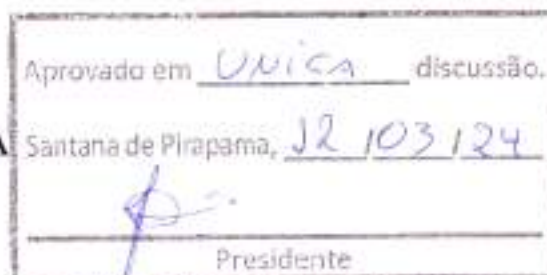 Aprovado em UNiCA discussão.
A Santana de Pirapama, 12/03/24
Presidente